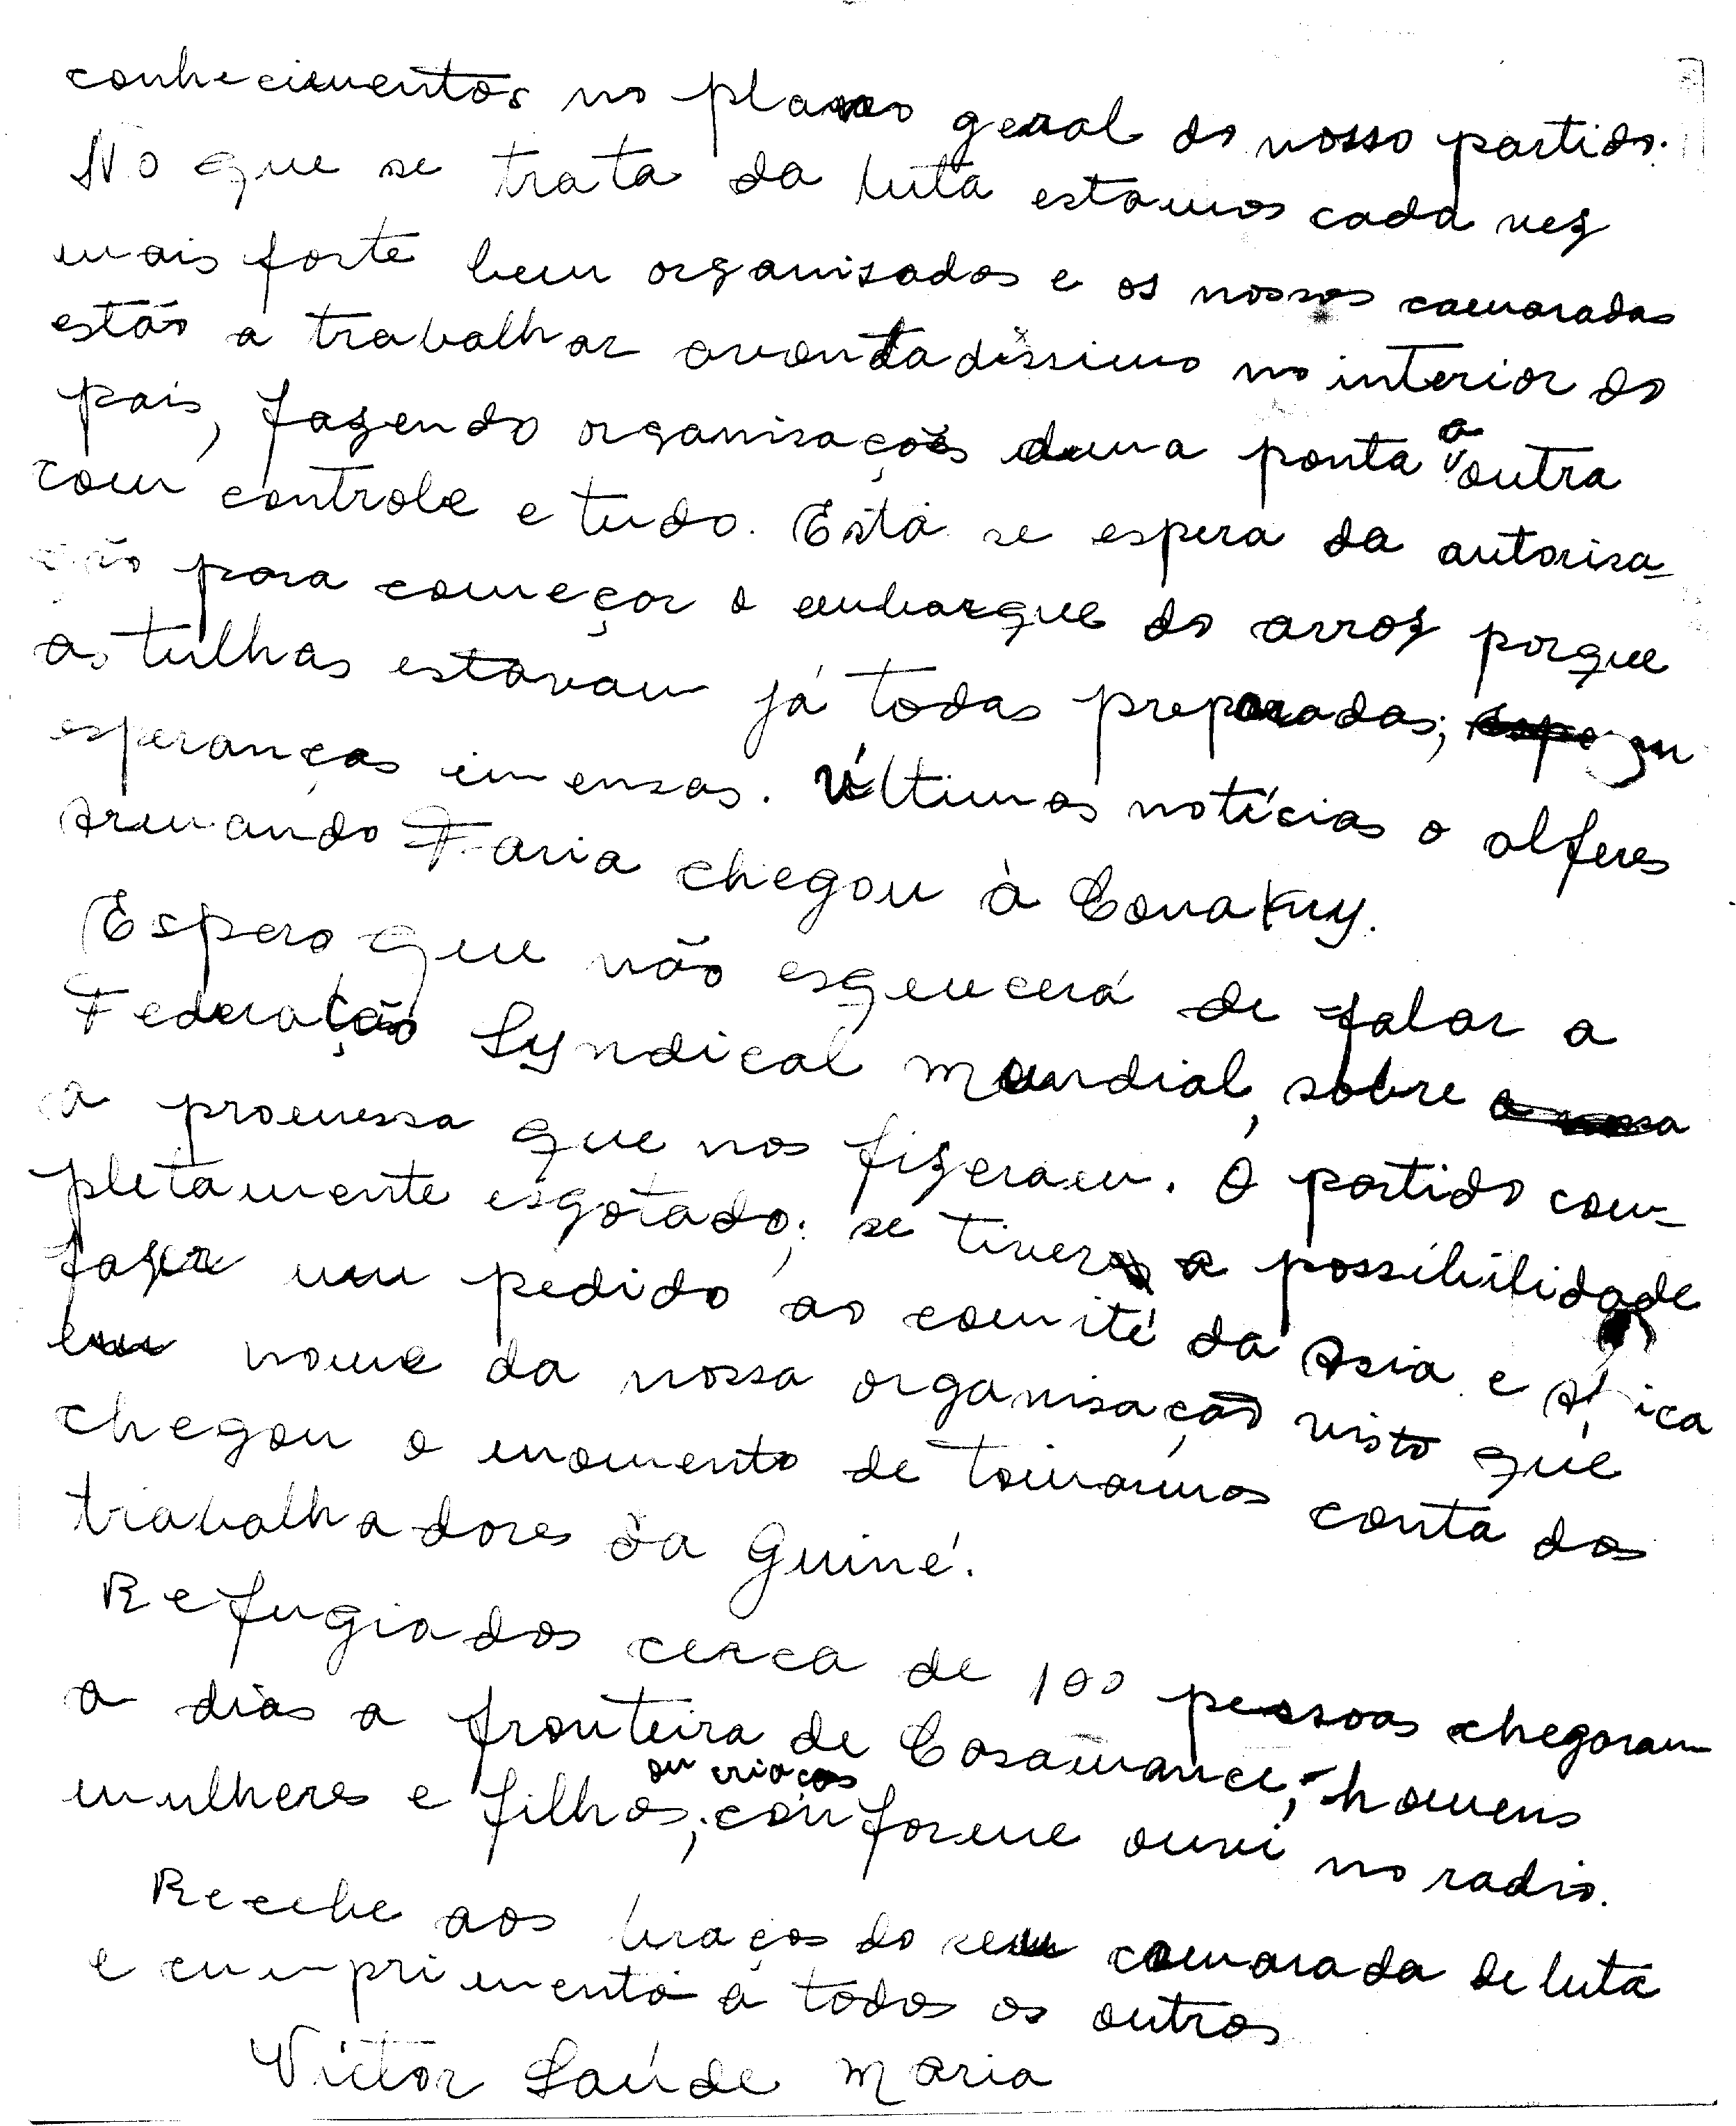 conhecimentos no plano geral do nosso partido.
No que se trata da luta estamos cada vez
mais forte bem organisados e os nossos camaradas
estão a trabalhar avontadissimo no interior do
pais, fazendo organisações duma ponta a outra
com controle e tudo. Está se espera da autorisa-
ção para começar o embarque do arroz porque
as tulhas estavam já todas preparadas;
esperanças imensas. Últimas notícias o alferes
Armando Faria chegou à Conakry.
Espero que não esquecerá de falar a
Federação Syndical Mundial, sobre
a promessa que nos fizeram. O partido com-
pletamente esgotado; se tiver a possibilidade
fazer um pedido ao comité da Asia e Africa
em nome da nossa organisação visto que
chegou o momento de tomarmos conta dos
trabalhadores da Guiné.
Refugiados cerca de 100 pessoas chegaram
a dias a fronteira de Casamance, homens
mulheres e filhos, ou criaças conforme ouvi no radio.
Recebe aos braços do seu camarada de luta
e cumprimento a todos os outros
Victor Saúde Maria